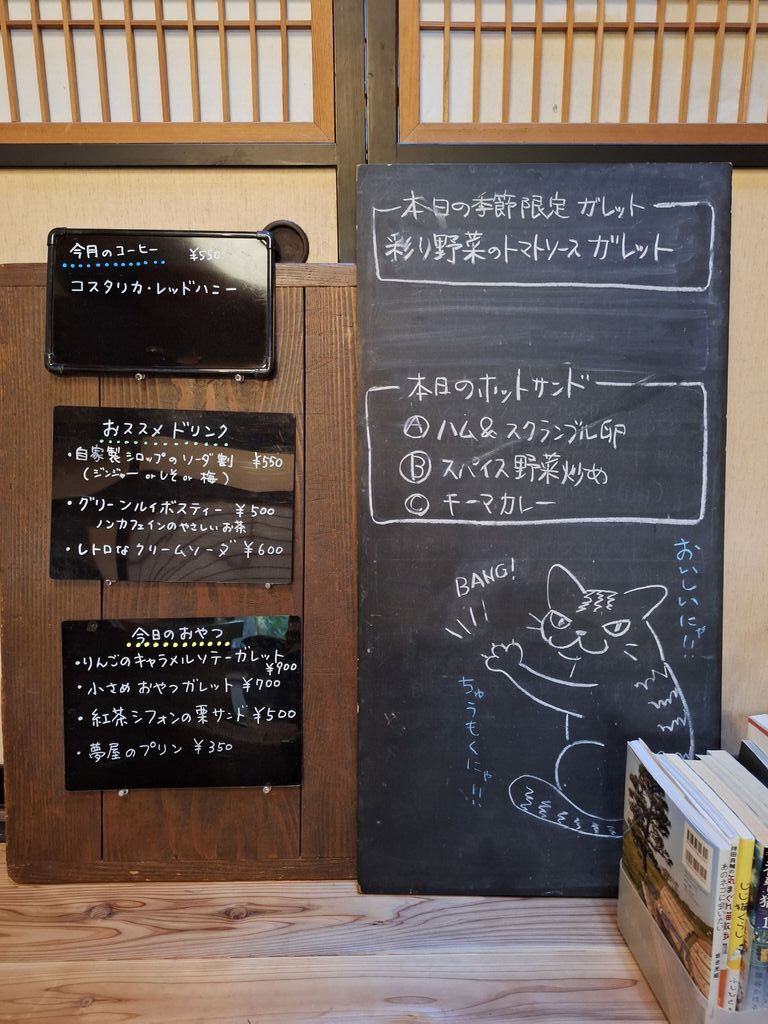 今月のコーヒー ¥550
コスタリカ・レッドハニー
おススメドリンク
・自家製シロップのソーダ割 ¥550
(ジンジャー or しそ or 梅)
・グリーンルイボスティー ¥500
ノンカフェインのやさしいお茶
・レトロなクリームソーダ ¥600
今日のおやつ
・りんごのキャラメルソテーガレット
¥900
・小さめ おやつガレット ¥700
・紅茶シフォンの栗サンド ¥500
・夢屋のプリン ¥350
本日の季節限定 ガレット
彩り野菜のトマトソース ガレット
本日のホットサンド
Ⓐ ハム& スクランブル卵
Ⓑ スパイス野菜炒め
Ⓒ チーマカレー
BANG!
おいしいにゃ!!
ちゅうもくにゃ!!
あのネコに会いたい